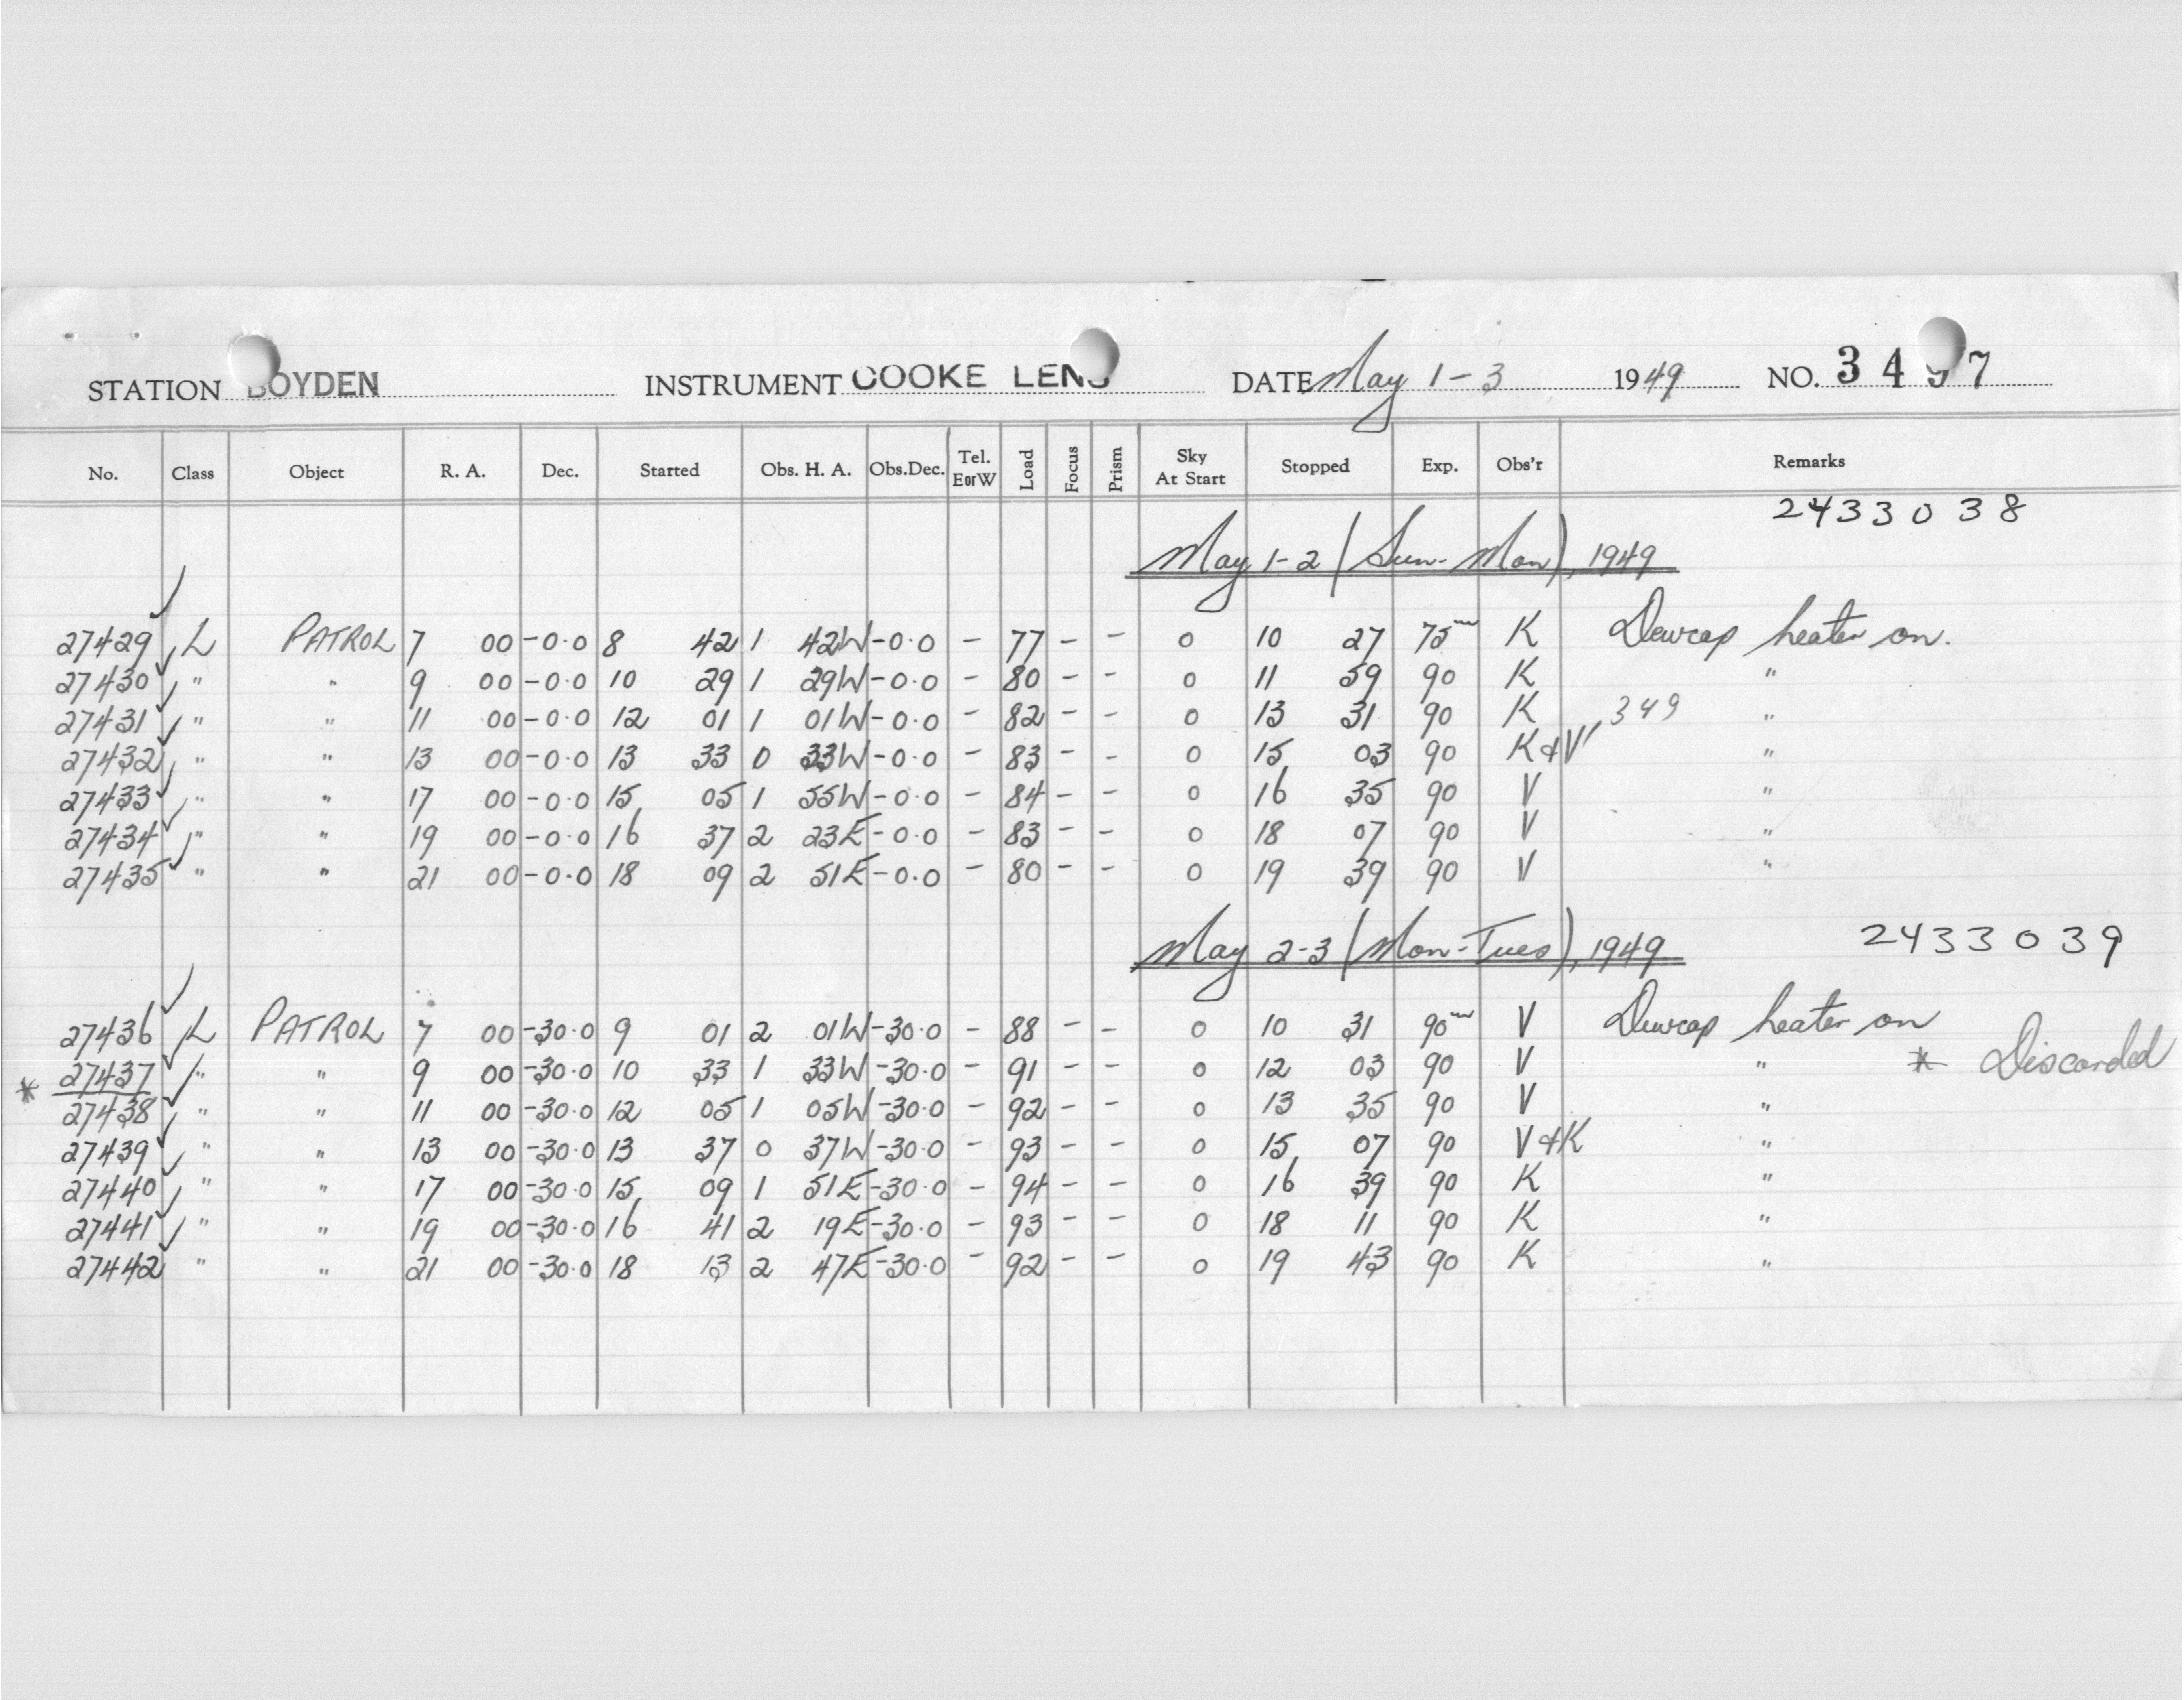 STATION BOYDEN INSTRUMENT COOKE LENS DATE May 1-3 1949 NO. 3497
No. Class Object R. A. Dec. Started Obs. H. A. Obs.Dec. Tel. EorW Load Focus Prism Sky At Start Stopped Exp. Obs'r Remarks
2433038
May 1-2 (Sun-Mon), 1949
27429 L PATROL 7 00 -0.0 8 42 1 42W -0.0 - 77 - - 0 10 27 75m K Dewcap heater on.
27430 " " 9 00 -0.0 10 29 1 29W -0.0 - 80 - - 0 11 59 90 K "
27431 " " 11 00 -0.0 12 01 1 01W -0.0 - 82 - - 0 13 31 90 K 349 "
27432 " " 13 00 -0.0 13 33 0 33W -0.0 - 83 - - 0 15 03 90 K&V "
27433 " " 17 00 -0.0 15 05 1 55W -0.0 - 84 - - 0 16 35 90 V "
27434 " " 19 00 -0.0 16 37 2 23E -0.0 - 83 - - 0 18 07 90 V "
27435 " " 21 00 -0.0 18 09 2 51E -0.0 - 80 - - 0 19 39 90 V "
May 2-3 (Mon-Tues), 1949 2433039
27436 L PATROL 7 00 -30.0 9 01 2 01W -30.0 - 88 - - 0 10 31 90m V Dewcap heater on
* 27437 " " 9 00 -30.0 10 33 1 33W -30.0 - 91 - - 0 12 03 90 V " * Discarded
27438 " " 11 00 -30.0 12 05 1 05W -30.0 - 92 - - 0 13 35 90 V "
27439 " " 13 00 -30.0 13 37 0 37W -30.0 - 93 - - 0 15 07 90 V&K "
27440 " " 17 00 -30.0 15 09 1 51E -30.0 - 94 - - 0 16 39 90 K "
27441 " " 19 00 -30.0 16 41 2 19E -30.0 - 93 - - 0 18 11 90 K "
27442 " " 21 00 -30.0 18 13 2 47E -30.0 - 92 - - 0 19 43 90 K "